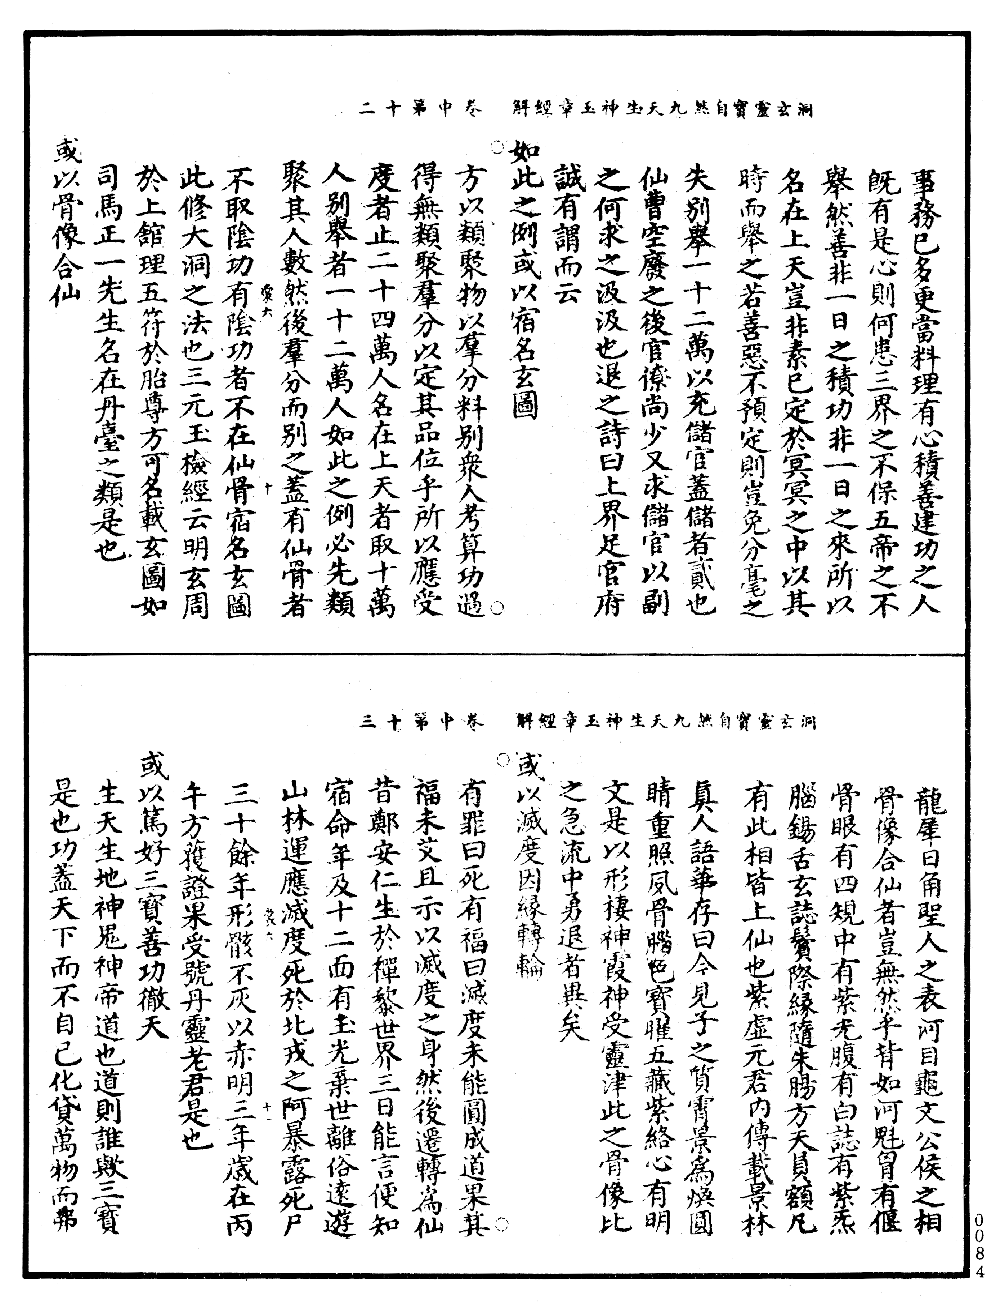 洞玄靈寶自然九天生神玉章經解　卷中第十二
事務已多更當料理有心積善建功之人
旣有是心則何患三界之不保五帝之不
舉然善非一日之積功非一日之來所以
名在上天豈非素已定於冥冥之中以其
時而舉之若善惡不預定則豈免分毫之
失別舉一十二萬以充儲官蓋儲者貳也
仙曹空廢之後官僚尚少又求儲官以副
之何求之汲汲也退之詩曰上界足官府
誠有謂而云
如此之例或以宿名玄圖
方以類聚物以羣分料別衆人考算功過
得無類聚羣分以定其品位乎所以應受
度者止二十四萬人名在上天者取十萬
人別舉者一十二萬人如此之例必先類
聚其人數然後羣分而別之蓋有仙骨者
不取陰功有陰功者不在仙骨宿名玄圖
此修大洞之法也三元玉檢經云明玄周
於上館理五符於胎尊方可名載玄圖如
司馬正一先生名在丹臺之類是也
或以骨像合仙
洞玄靈寶自然九天生神玉章經解　卷中第十三
龍犀日角聖人之表河目龜文公侯之相
骨像合仙者豈無然乎背如河魁胷有偃
骨眼有四規中有紫光腹有白誌有紫炁
腦錫舌玄誌鬢際緣隨朱腸方天員額凡
有此相皆上仙也紫虛元君內傳載景林
眞人語華存曰今見子之質霄景爲煥圓
睛重照鳳骨腦色寶曜五藏紫絡心有明
文是以形棲神霞神受靈津此之骨像比
之急流中勇退者異矣
或以滅度因緣轉輪
有罪曰死有福曰滅度未能圓成道果其
福未艾且示以滅度之身然後遷轉爲仙
昔鄭安仁生於禪黎世界三日能言便知
宿命年及十二而有玉光棄世離俗遠遊
山林運應滅度死於北戎之阿暴露死尸
三十餘年形骸不灰以赤明三年歲在丙
午方獲證果受號丹靈老君是也
或以篤好三寶善功徹天
生天生地神鬼神帝道也道則誰歟三寶
是也功蓋天下而不自己化貸萬物而弗
0084